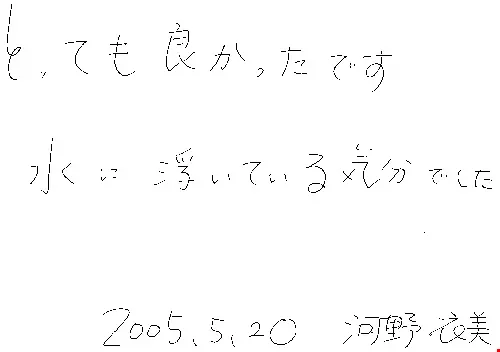 とっても良かったです
水に浮いている気分でした
2005.5.20 河野衣美